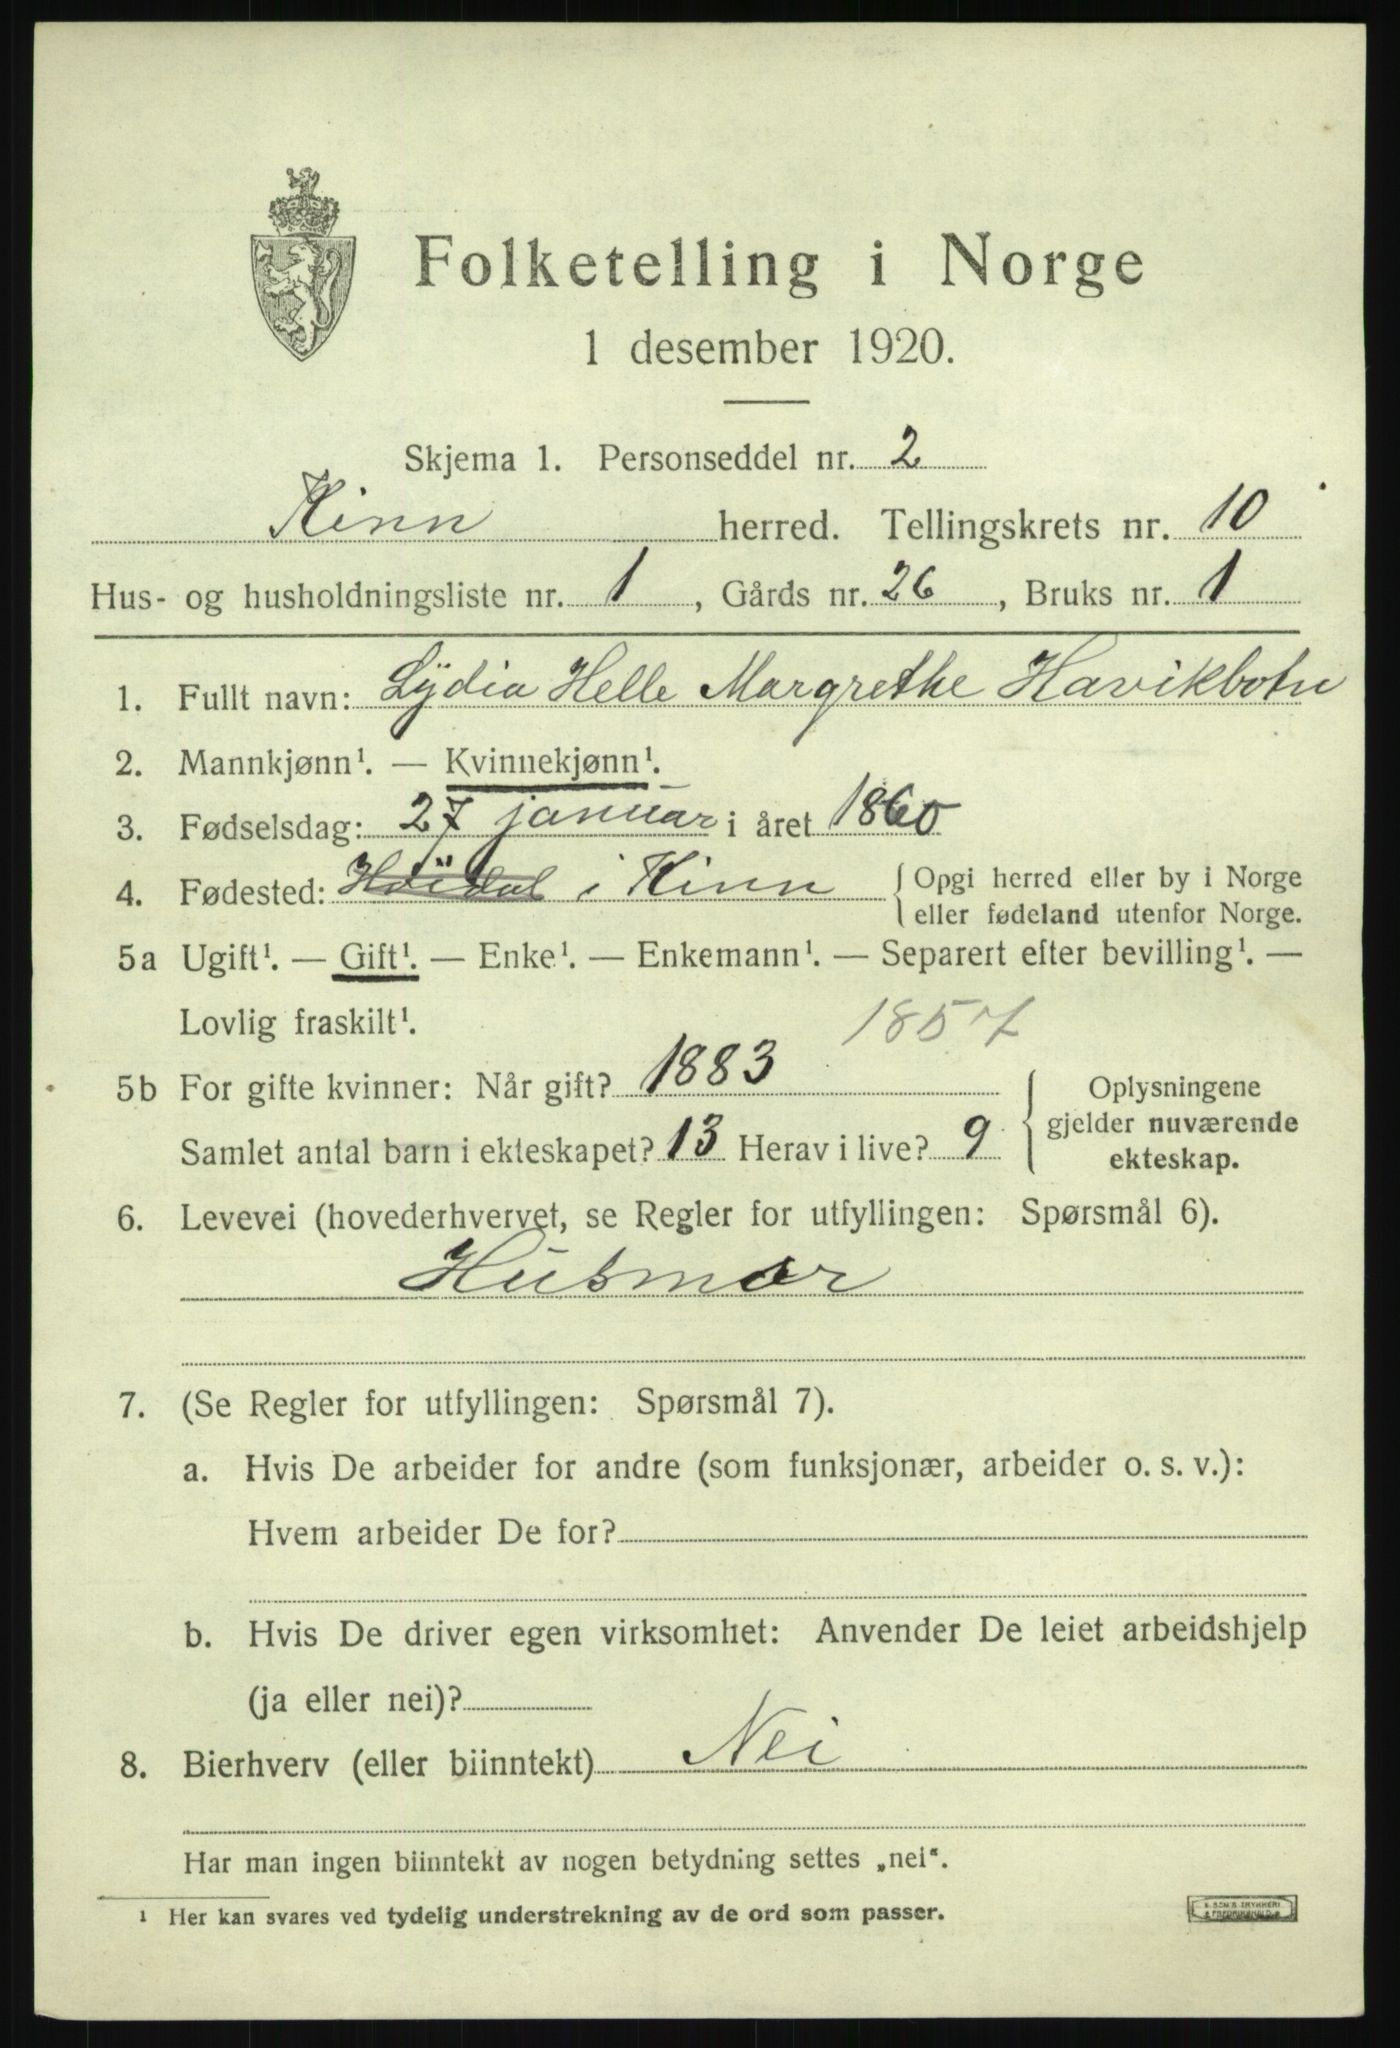 Folketelling i Norge
1 desember 1920.
Skjema 1. Personseddel nr. 2
Kinn herred. Tellingskrets nr. 10
Hus- og husholdningsliste nr. 1, Gårds nr. 26, Bruks nr. 1
1. Fullt navn: Lÿdia Helle Margrethe Havikbotn
2. Mannkjønn¹. — Kvinnekjønn¹.
3. Fødselsdag: 27 januar i året 1860
4. Fødested: Höidal i Kinn { Opgi herred eller by i Norge
eller fødeland utenfor Norge.
5a Ugift¹. — Gift¹. — Enke¹. — Enkemann¹. — Separert efter bevilling¹. —
Lovlig fraskilt¹. 1857
5b For gifte kvinner: Når gift? 1883 { Oplysningene
gjelder nuværende
Samlet antal barn i ekteskapet? 13 Herav i live? 9 ekteskap.
6. Levevei (hovederhvervet, se Regler for utfyllingen: Spørsmål 6).
Husmor
7. (Se Regler for utfyllingen: Spørsmål 7).
a. Hvis De arbeider for andre (som funksjonær, arbeider o. s. v.):
Hvem arbeider De for?
b. Hvis De driver egen virksomhet: Anvender De leiet arbeidshjelp
(ja eller nei)?
8. Bierhverv (eller biinntekt) Nei
Har man ingen biinntekt av nogen betydning settes „nei“.
¹ Her kan svares ved tydelig understrekning av de ord som passer.